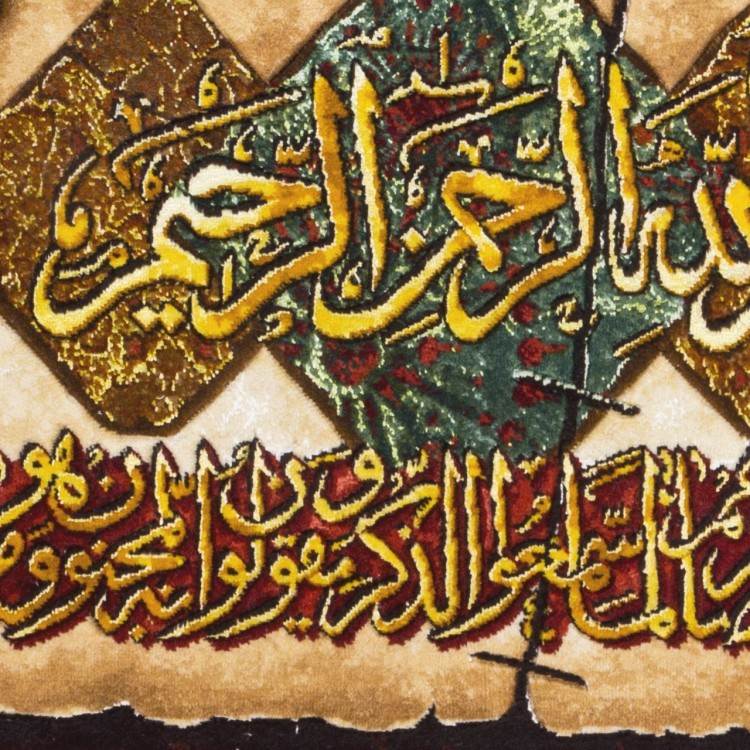 الله الرحمن الرحيم
لما سمعوا الذكر ويقولون إنه لمجنون وما هو